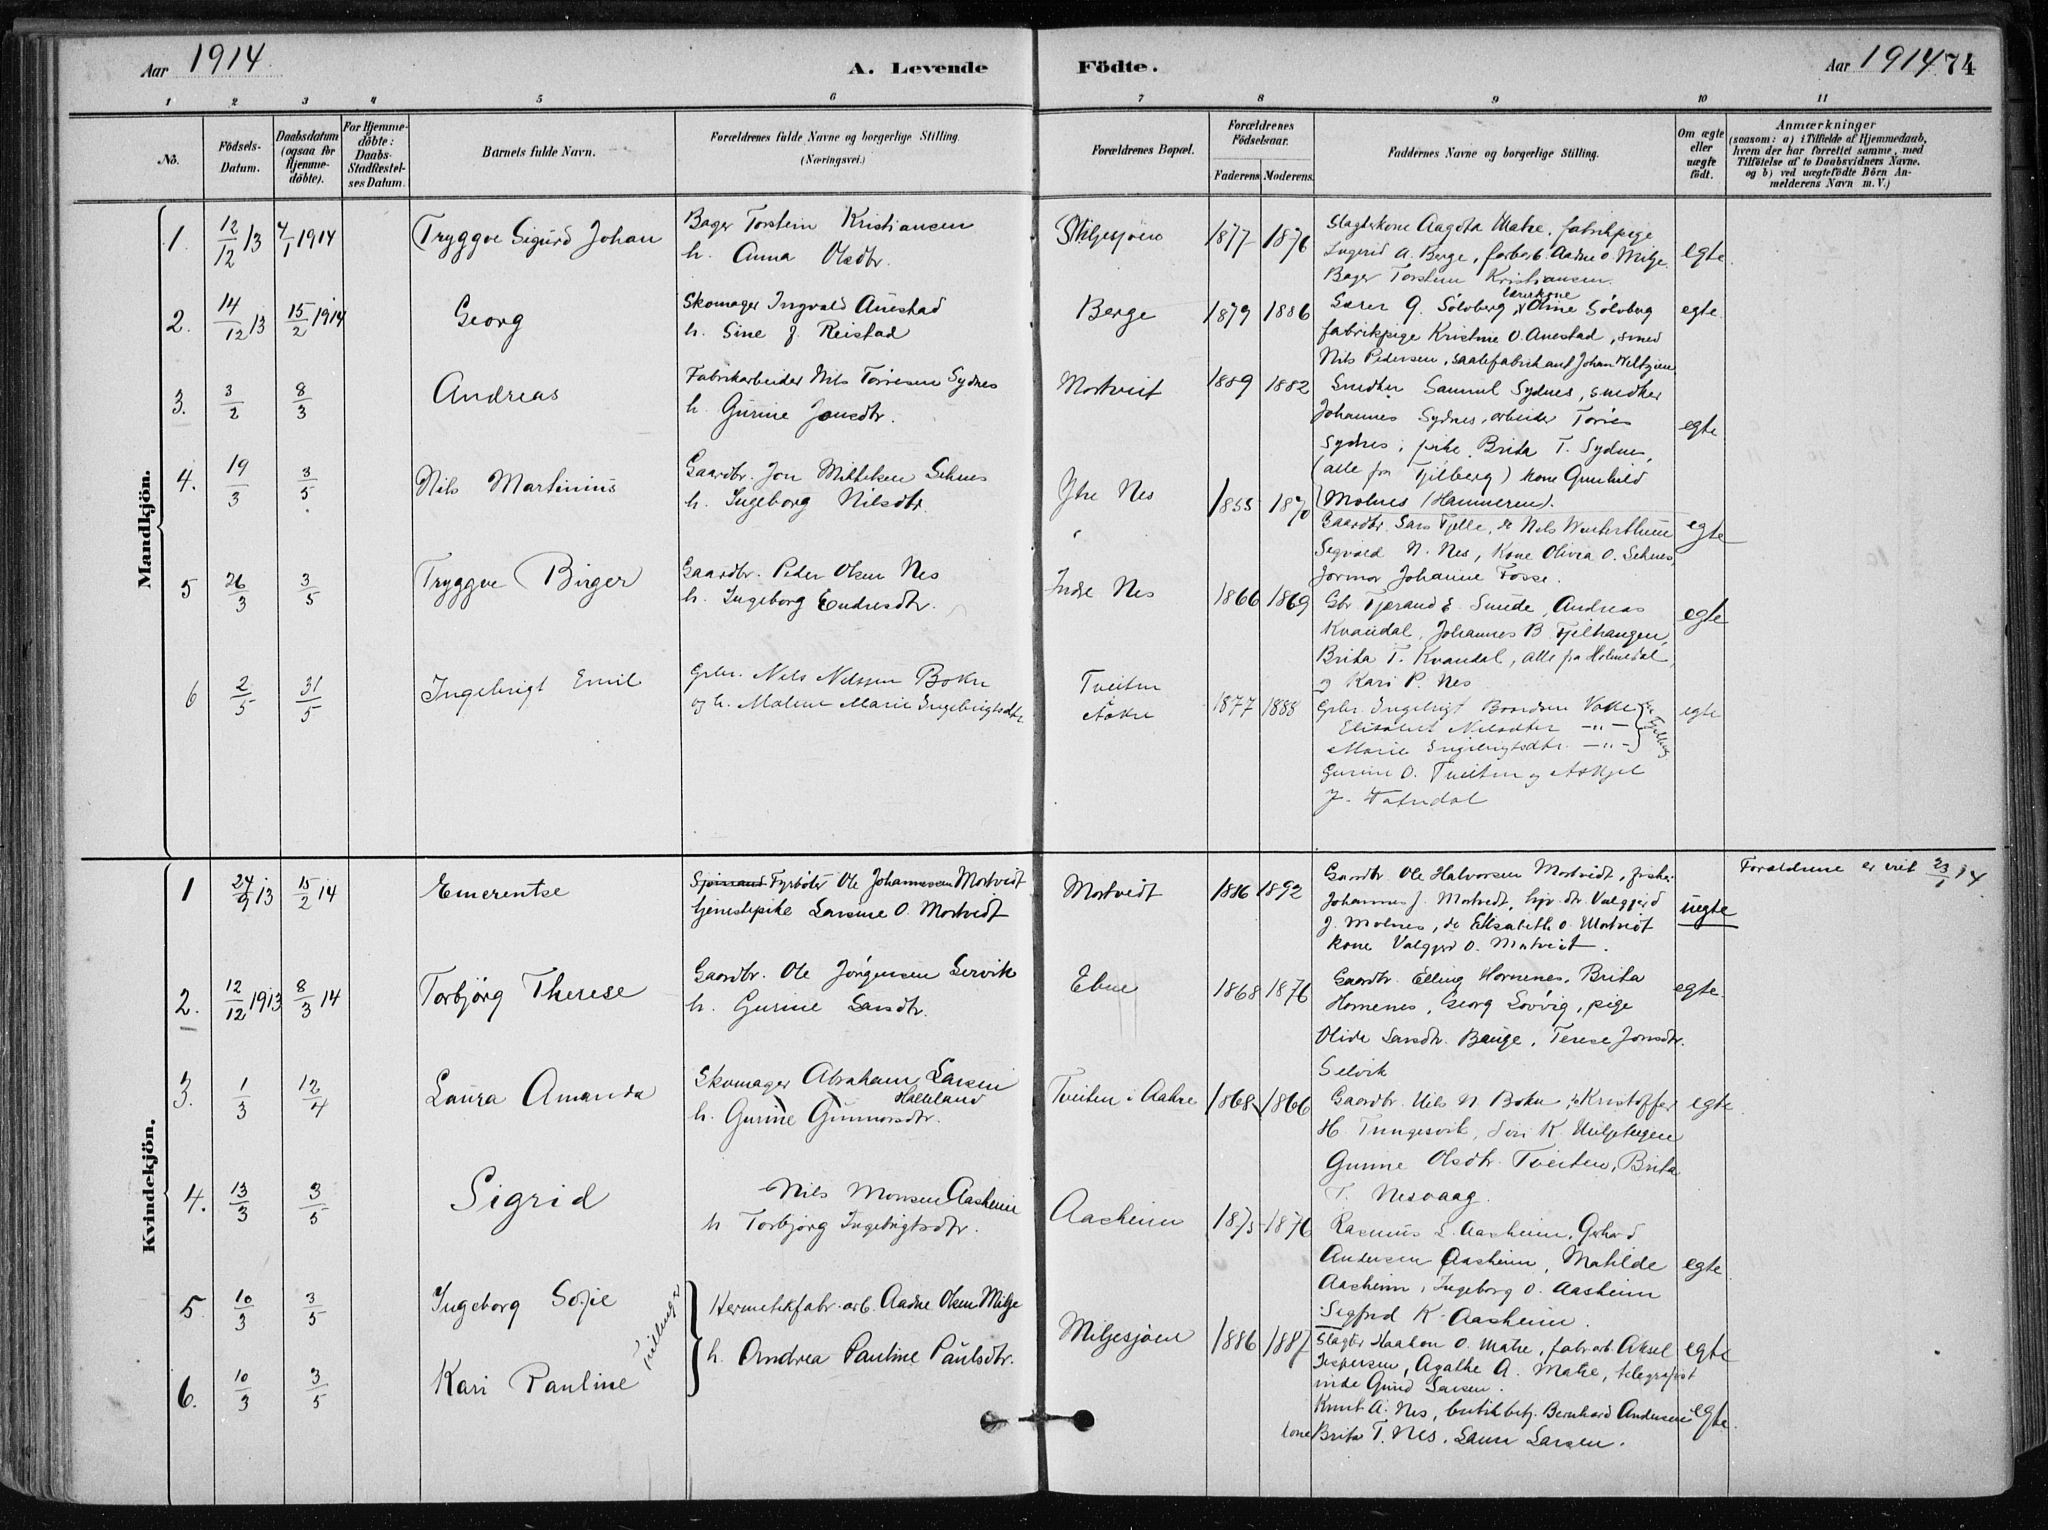 Aar 1914.
A. Levende
Födte.
Aar 1914 74
1 2 3 4 5 6 7 8 9 10 11
No.
Födsels-Datum.
Daabsdatum (ogsaa for Hjemme-döbte).
For Hjemme-döbte: Daabs-Stadfæstel-ses Datum.
Barnets fulde Navn.
Forældrenes fulde Navne og borgerlige Stilling. (Næringsvei.)
Forældrenes Bopæl.
Forældrenes Födselsaar.
Faderens. Moderens.
Faddernes Navne og borgerlige Stilling.
Om ægte eller uægte födt.
Anmærkninger
(saasom: a) i Tilfælde af Hjemmedaab,
hvem der har forrettet samme, med
Tilföielse af to Daabsvidners Navne.
og b) ved uægtefödte Börn An-
melderens Navn m. V.)
Mandkjön.
1. 12/12 13 4/1 1914 Tryggve Sigurd Johan
Bager Torstein Kristiansen
h. Anna Olsdtr.
1877 1876
Slagterkone Aagota Matre, fabrikpige
Ingerid A. Berge, farbarb. Aadne O. Milje
Bager Torstein Kristiansen.
egte
2. 14/12 13 15/2 1914 Georg
Skomager Ingvald Anestad
h. Sine J. Reistad
Berge 1879 1886
Lærer G. Sölvberg, lærerkone Oline Sölvberg
fabrikpige Kristine O. Anestad, smed
Nils Pedersen, saalefabrikant Johan Weltzien
egte
3. 3/2 8/3 Andreas
Fabrikarbeider Nils Torresen Sydnes
h. Gurine Jonsdtr.
Mortveit 1889 1882
Snedker Samuel Sydnes, snedker
Johannes Sydnes, arbeider Torres
Sydnes, pike Brita T. Sydnes,
(alle fra Fjelberg) kone Gunhild
Molnes (Hammeren).
egte
4. 19/3 3/5 Nils Martinius
Gaardbr. Jon Mikkelsen Sehnes
h. Ingeborg Nilsdtr.
Ytre Nes 1855 1870
Gaardbr. Lars Fjelle, do Nils Westerheim
Sigvald N. Nes, Kone Olivia O. Sehnes,
Jormor Johanne Fosse.
egte
5 26/3 3/5 Tryggve Birger
Gaardbr. Peder Olsen Nes
h. Ingeborg Endresdtr.
Indre Nes 1866 1869
Gbr Tjerand E. Smede, Andreas
Kvandal, Johannes B. Fjelhaugen,
Brita T. Kvandal, alle fra Holmedal,
og Kari P. Nes
egte
6 2/5 31/5 Ingebrigt Emil
Grbr. Nils Nilssen Bokn
og h. Malene Marie Ingebrigtsdtr
Tveiten
Aakre 1877 1888
Grbr. Ingebrigt Baardsen Vake
Elisabet Nilsdtter —„—
Marie Ingebrigtsdtr. —„—
Gurine O. Tveiten og Askjel
J. Vatndal
egte
Kvindekjön.
1 24/9 13 15/2 14 Emerentse
Fyrböter Ole Johannessen Mortvedt
tjenestepike Larsine O. Mortvedt
Mortvedt 1886 1892
Gaardbr. Ole Halvorsen Mortvedt, fisker
Johannes J. Mortvedt, hjv. dtr. Valgjerd
J. Molnes, do Elisabeth O. Mortvedt
kone Valgjerd O. Mortveit.
uegte
Forældrene er viet 23/1 14
2. 12/12 1913 8/3 14 Torbjörg Therese
Gaardbr. Ole Jörgensen Lervik
h. Gurine Larsdtr.
Ebne 1868 1876
Gaardbr. Elling Hornenes, Brita
Hornenes, Georg Lovvig, pige
Olida Larsdtr. Bauge, Terese Jonsdtr.
Selvik
egte.
3. 1/3 12/4 Laura Amanda
Skomager Abraham Larsen
Halleland
h. Gurine Gunnarsdtr.
Tveiten i Aakre 1868 1866
Gaardbr. Nils N. Bokn, do Kristoffer
H. Tungesvik, Siri K. Miljeteigen
Gurine Olsdtr. Tveiten, Brita
T. Nesvaag.
egte
4. 13/3 3/5 Sigrid
Nils Monsen Aasheim
h Torbjörg Ingebrigtsdtr.
Aasheim 1875 1876
Rasmus L. Aasheim, Gerhard
Andersen Aasheim, Matilde
Aasheim, Ingeborg O. Aasheim
Sigfrid K. Aasheim.
egte
5 10/3 3/5 Ingeborg Sofie
tvillinger
Hermetikfabr. arb. Aadne Olsen Milje
h. Andrea Pauline Paulsdtr.
Miljesjöen 1886 1887
Slagter Haakon O. Matre, fabr. arb. Aksel
Jespersen, Agathe A. Matre, telegrafist
inde Gurid Larsen.
egte
6. 10/3 3/5 Kari Pauline
Knut A. Nes, butikbetj. Bernhard Andersen
kone Brita T. Nes, Laura Larsen.
egte.